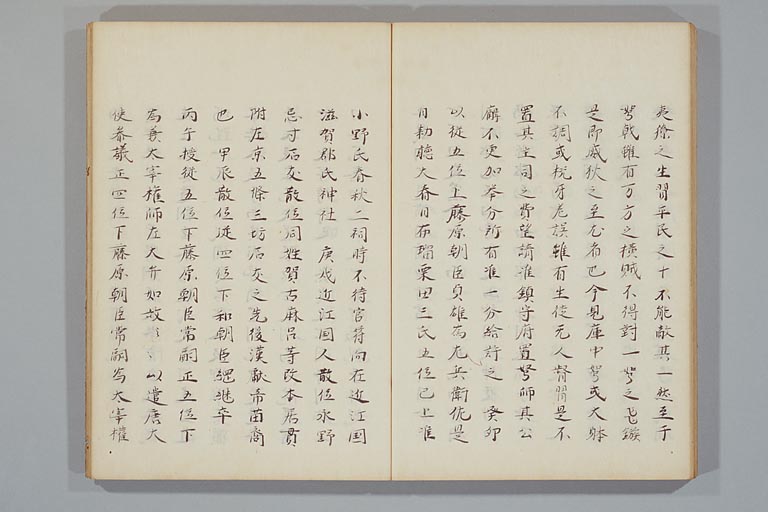 夷獠之生習平民之十不能敵其一然至于
弩戟雖有万方之横賊不得對一弩之飛鏃
是即威狄之至尤者已今見庫中弩或大體
不調或机牙差誤雖有生徒无人督習是不
置其主司之費望請准鎮守府置弩師其公
廨不更加挙分所有准一分給許之 癸卯
以從五位上藤原朝臣貞雄為左兵衛佐是
日勅聽大春日布瑠粟田三氏五位已上准
小野氏春秋二祠時不待官符向在近江国
滋賀郡氏神社 庚戌近江国人散位永野
忌寸石友散位同姓賀古麻呂等改本居貫
附左京五條三坊石友之先後漢献帝苗裔
也 甲辰散位從四位下和朝臣縄継卒
丙午授從五位下藤原朝臣常嗣正五位下
為兼大宰権師左大弁如故 以遣唐大
使参議正四位下藤原朝臣常嗣為大宰權